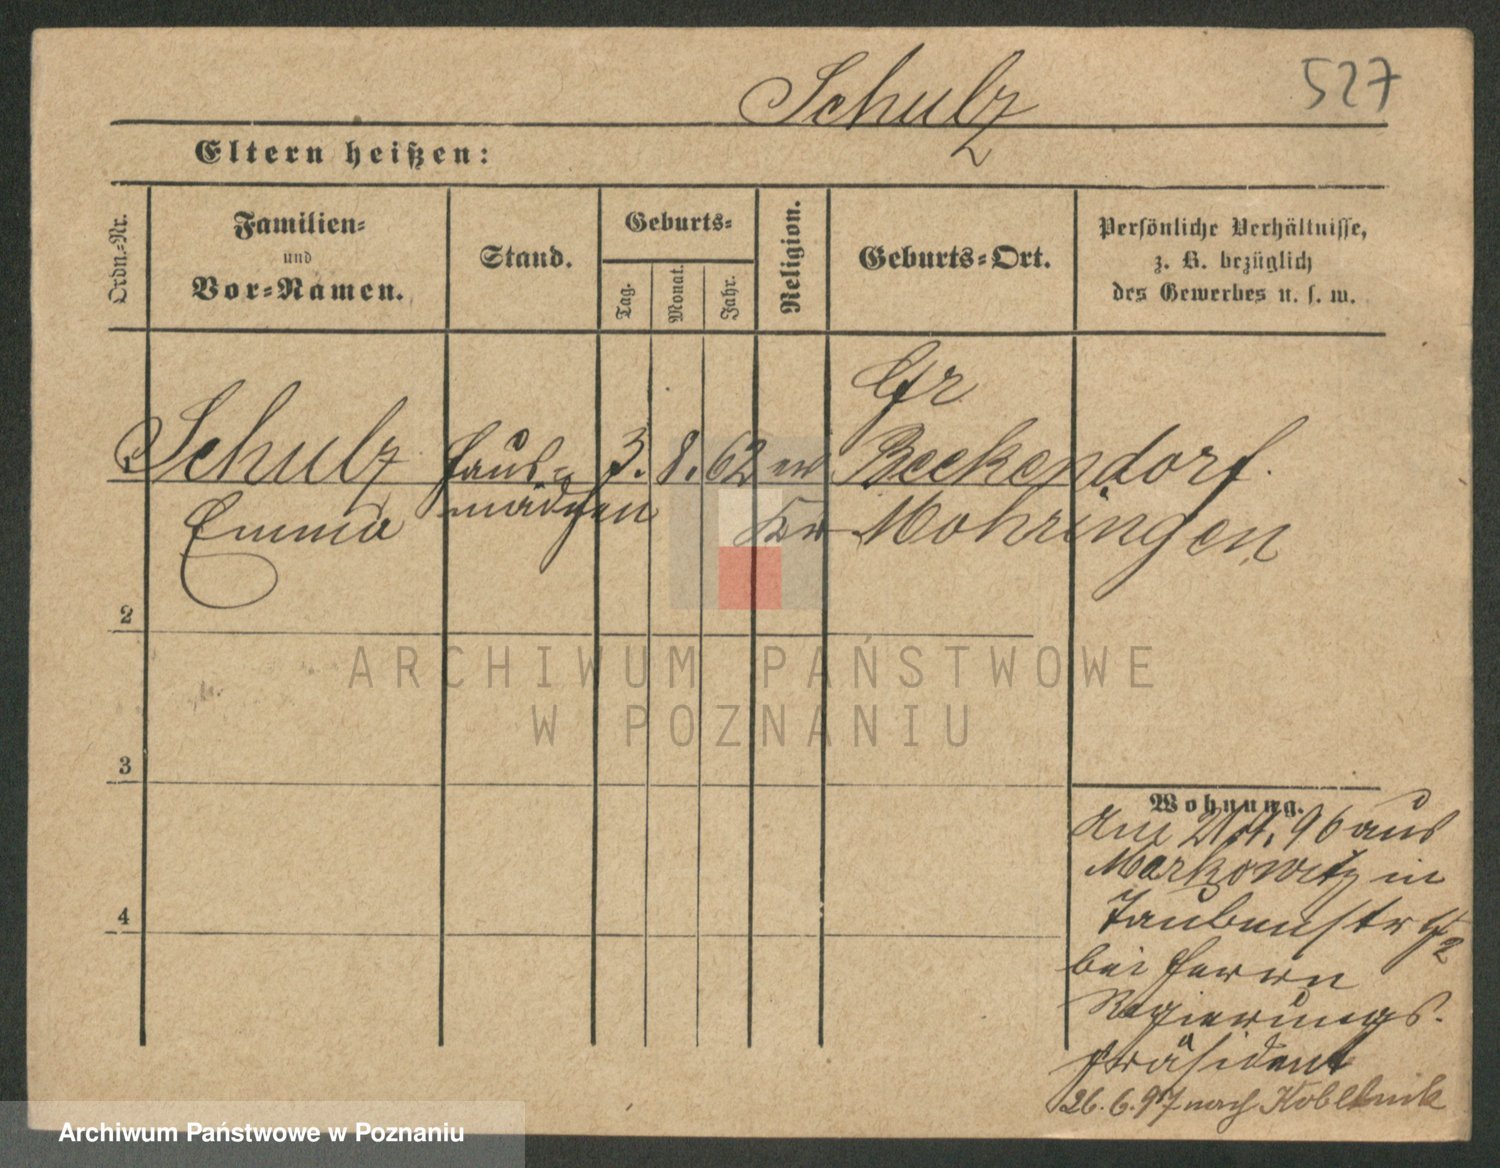 Schulz
527
Eltern heißen:
Ordn.-Nr.
Familien-
und
Vor-Namen.
Stand.
Geburts-
Tag.
Monat.
Jahr.
Religion.
Geburts-Ort.
Persönliche Verhältnisse,
z. B. bezüglich
des Gewerbes u. s. w.
Gr
Schulz Haus- 3. 8. 62 ev Beckendorf.
Emma mädchen Kr Mohringen
2
3
4
Wohnung.
Am 96 aus
Markowitz in
Taubenstr
bei Herrn
Regierungs-
präsident
26.6.97 nach
ARCHIWUM PAŃSTWOWE
W POZNANIU
Archiwum Państwowe w Poznaniu